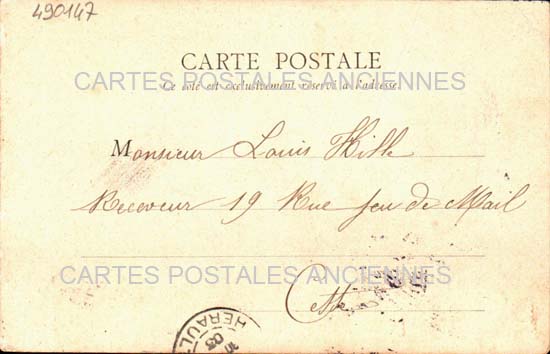 490147
CARTE POSTALE
CARTES POSTALES ANCIENNES
Ce côté est exclusivement réservé à l'adresse.
Monsieur Louis
Receveur 19 Rue Jeu de Mail
CARTES POSTALES ANCIENNES
Cette
HÉRAULT
03